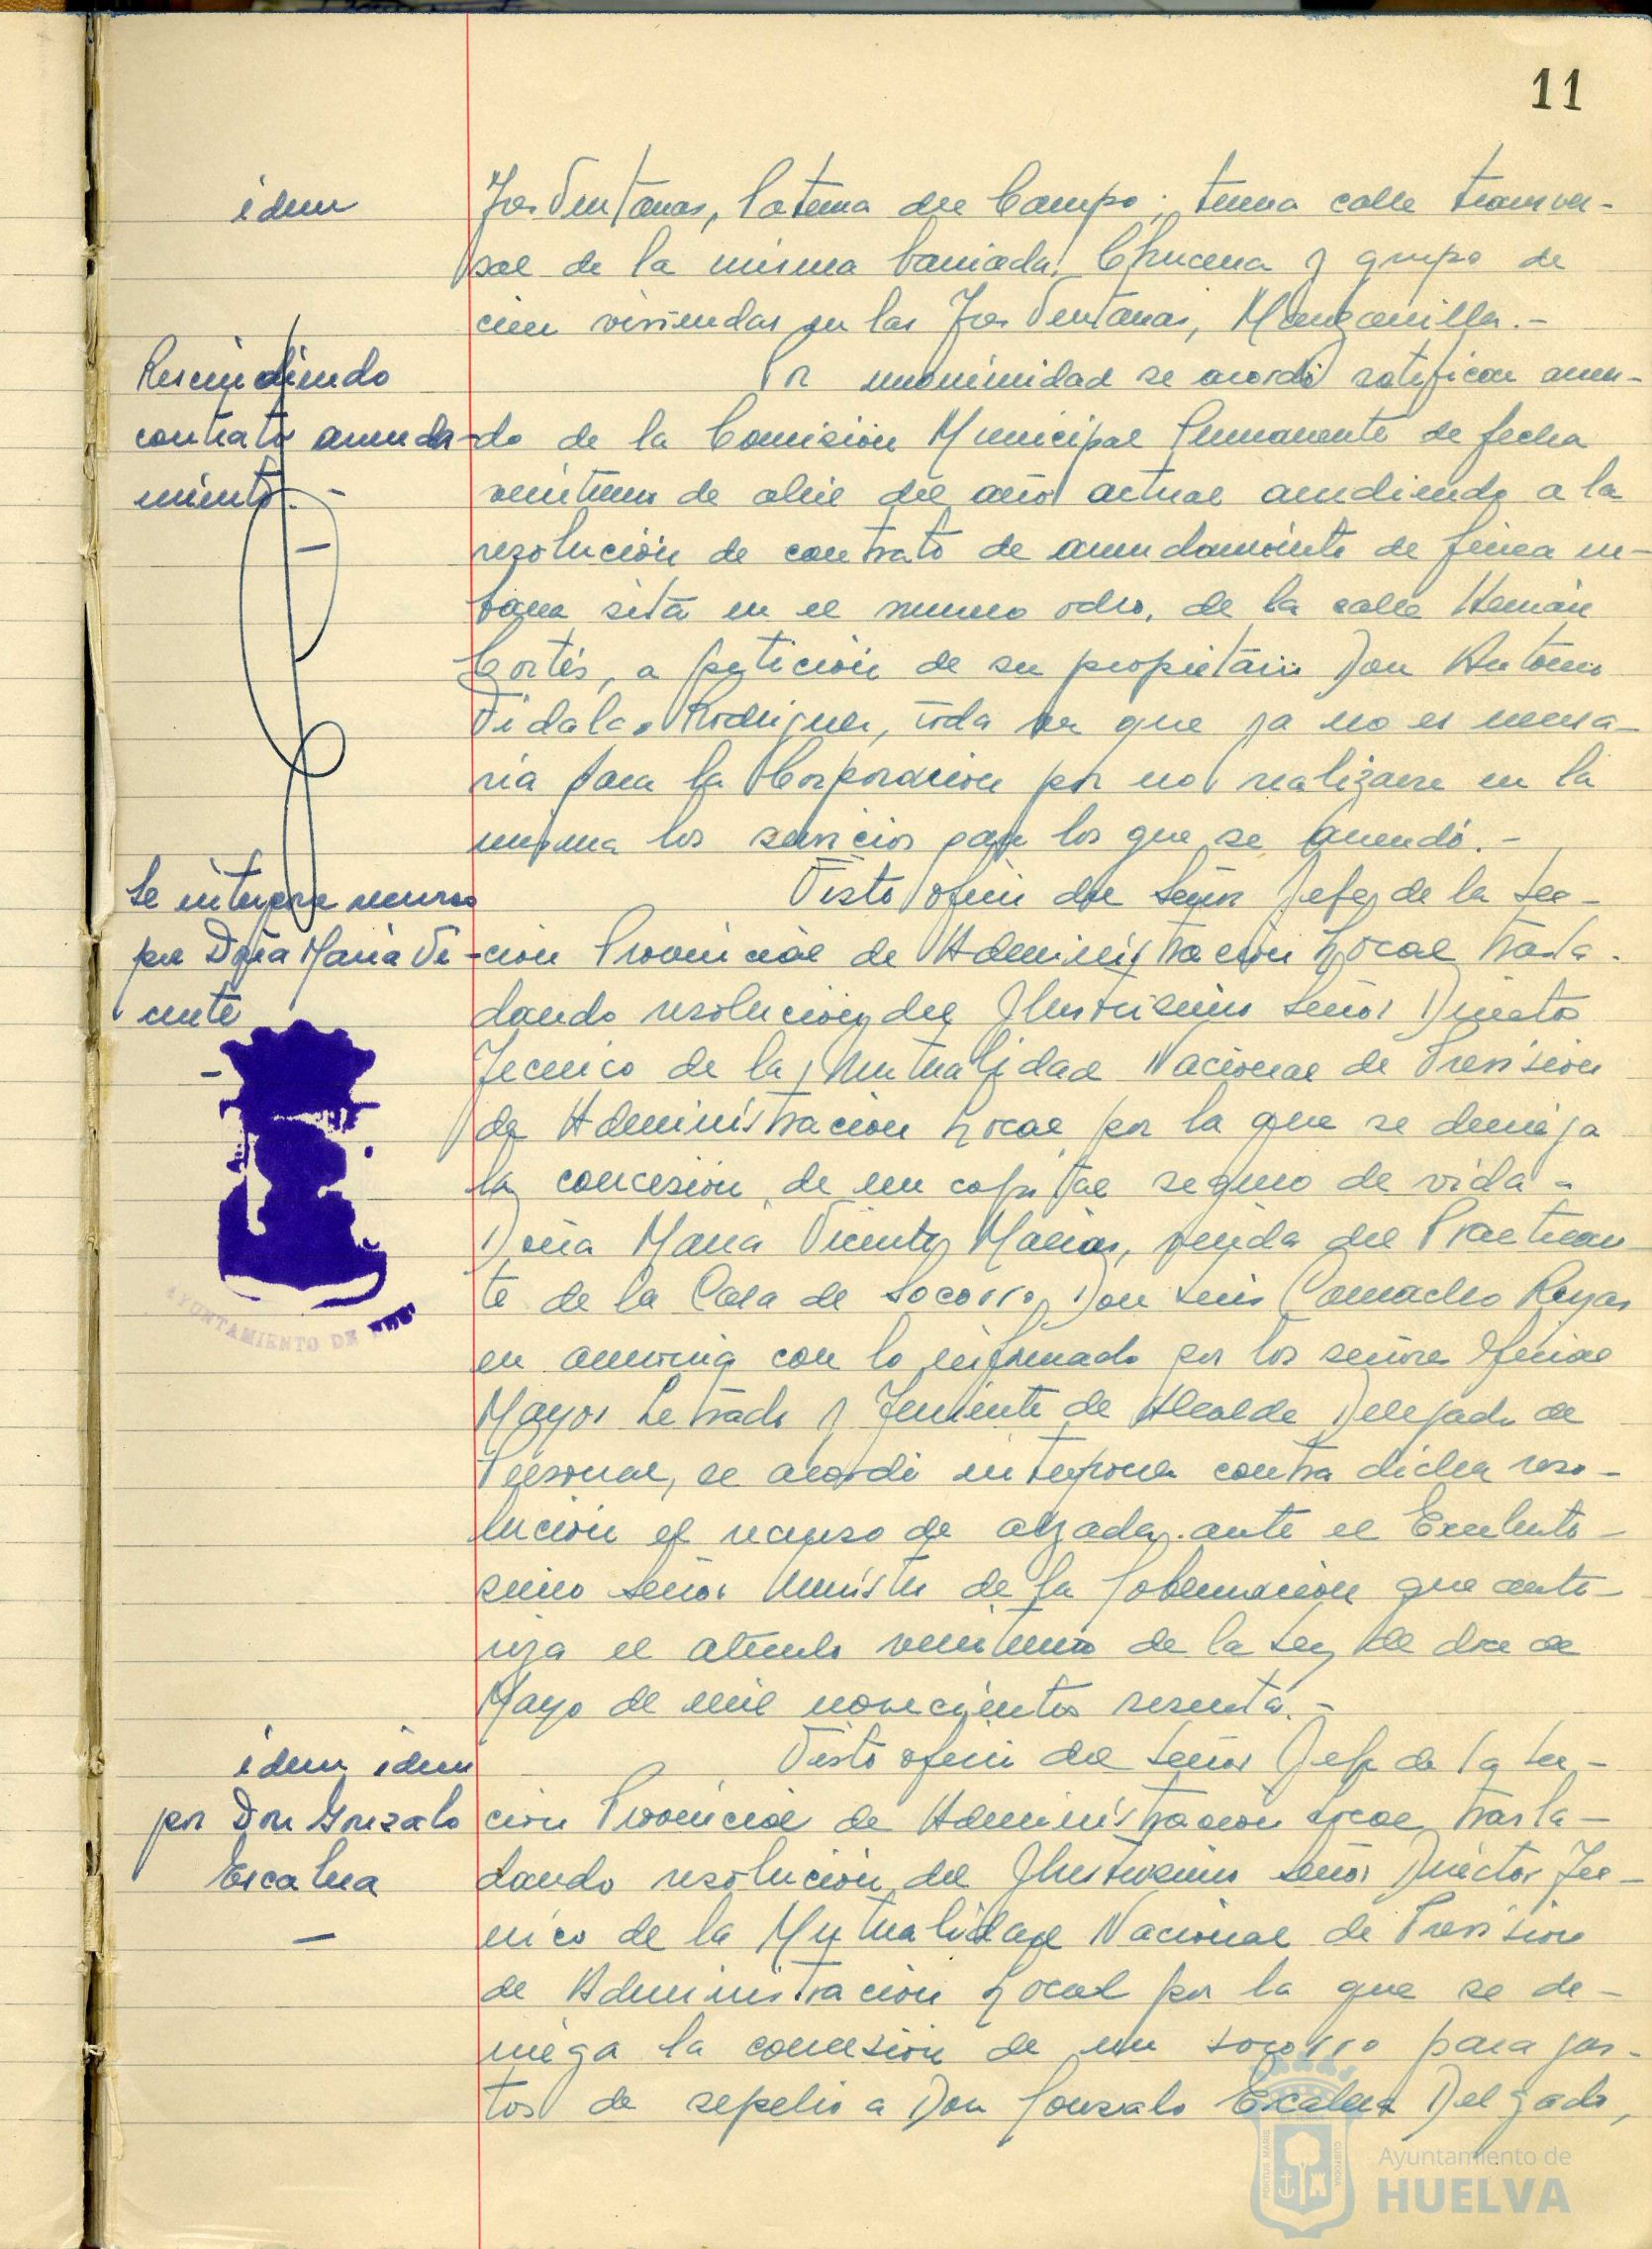 11
idem
Tres Ventanas, Paterna del Campo; tercera calle transver-
sal de la misma barriada, Chucena y grupo de
cien viviendas en las Tres Ventanas, Manzanilla.-
Rescindiendo
contrato arrenda-
miento.-
Por unanimidad se acordó ratificar acuer-
do de la Comisión Municipal Permanente de fecha
veintiuno de abril del año actual accediendo a la
resolución de contrato de arrendamiento de finca ur-
bana sita en el numero ocho, de la calle Hernán
Cortés, a petición de su propietario Don Antonio
Vidal Rodriguez, toda vez que ya no es necesa-
ria para la Corporación por no realizarse en la
misma los servicios para los que se arrendó.-
Se interpone recurso
por Doña Maria Vi-
cente
Visto oficio del Señor Jefe de la Sec-
ción Provincial de Administración Local trasla-
dando resolución del Ilustrisimo Señor Director
Tecnico de la Mutualidad Nacional de Prevision
de Administración Local por la que se deniega
la concesión de un capital seguro de vida -
Doña Maria Vicente Macias, viuda del Practican-
te de la Casa de Socorro, Don Luis Camacho Rojas
en armonia con lo informado por los señores Oficial
Mayor Letrado y Teniente de Alcalde Delegado de
Personal, se acordó interponer contra dicha reso-
lución el recurso de alzada ante el Excelenti-
simo Señor Ministro de la Gobernación que auto-
riza el articulo veintiuno de la Ley de doce de
Mayo de mil novecientos sesenta.-
idem idem
por Don Gonzalo
Escalera
Visto oficio del Señor Jefe de la Sec-
ción Provincial de Administración Local trasla-
dando resolución del Ilustrisimo Señor Director Tec-
nico de la Mutualidad Nacional de Prevision
de Administración Local por la que se de-
niega la concesión de un socorro para gas-
tos de sepelio a Don Gonzalo Escalera Delgado,
AYUNTAMIENTO DE
Ayuntamiento de
HUELVA